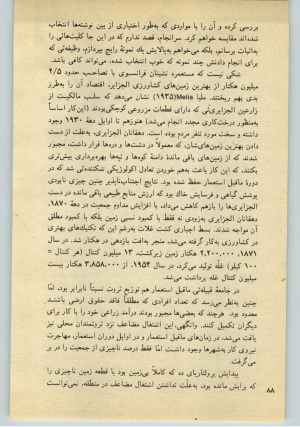 بررسی کرده و آن را با مواردی که به‌طور اختیاری از بین نوشته‌ها انتخاب
شده‌اند مقایسه خواهم کرد. سرانجام، قصد ندارم که در این جا کلیت‌هائی را
به‌اثبات برسانم، بلکه می‌خواهم به‌بالایش یک نمونهٔ رایج بپردازم، وظیفه‌ئی که
برای انجام دادنش چند نمونه که خوب انتخاب شده، می‌تواند کافی باشد.
شکی نیست که مستعمره نشینان فرانسوی با تصاحب حدود ۲/۵
میلیون هکتار از بهترین زمین‌های کشاورزی الجزایر، اقتصاد آن را به‌طرز
بدی بهم ریختند. ملیا Melia(۱۹۳۵) نشان می‌دهد که سلب مالکیت از
زارعین الجزایری‌ئی که دارای قطعات مزروعی کوچکی بودند (این کار اساساً
به‌منظور درخت‌کاری مجدد انجام می‌شد) هنوز هم تا اوایل دههٔ ۱۹۳۰ وجود
داشته و سخت مورد تنفر مردم بوده است. دهقانان الجزایری، به‌علت از دست
دادن بهترین زمین‌های‌شان، که معمولاً در دشت‌ها و دره‌ها قرار داشت، مجبور
شدند که از زمین‌های باقی ماندهٔ دامنهٔ کوه‌ها و تپه‌ها بهره‌برداری بیش‌تری
بکنند، که این کار باعث به‌هم خوردن تعادل اکولوژیکی شکننده‌ئی شد که در
دورهٔ ماقبل استعمار حفظ شده بود. نتایج اجتناب‌ناپذیر چنین چیزی نابودی
پوشش گیاهی و فرسایش خاک بود که ارزش منابع طبیعی باقی مانده در دست
الجزایری‌ها را بازهم کاهش می‌داد، با افزایش مداوم جمعیت در دههٔ ۱۸۷۰،
دهقانان الجزایری به‌زودی نه فقط با کمبود نسبی زمین بلکه با کمبود مطلق
آن مواجه شدند. بسط اجباری کشت غلات به‌رغم این که تکنیک‌های بهتری
در کشاورزی به‌کار گرفته می‌شد، منجر به‌افت بازدهی در هکتار شد. در سال
۱۸۷۱، ۲,۲۰۰,۰۰۰ هکتار زمین زیرکشت، ۱۳ میلیون کنتال (هر کنتال =
۱۰۰ کیلو) غلّه تولید می‌کرد، در سال ۱۹۵۴، از ۳,۸۵۸,۰۰۰ هکتار بیست
میلیون کنتال غله برداشت می‌شد.
در جامعهٔ قبیله‌ئی ماقبل استعمار هم توزیع ثروت نسبتاً نابرابر بود، اما
چنین به‌نظر می‌رسد که تعداد افرادی که مطلقاً فاقد حقوق ارضی باشند
معدود بود. هرچند که بعضی‌ها مجبور بودند درآمد زراعی خود را با کار برای
دیگران تکمیل کنند. وانگهی، این اشتغال مضاعف نزد ثروتمندان محلی نیز
یافت می‌شد، در زمان‌های ماقبل استعمار و در اوایل دوران استعمار، مهاجرت
نیروی کار به‌شهرها وجود داشت اما فقط درصد ناچیزی از جمعیت را در بر
می‌گرفت.
پیدایش پرولتاریای ده که کاملاً بی‌زمین بود یا قطعه زمین ناچیزی را
که برایش مانده بود، به‌علّت نداشتن اشتغال مضاعف در منطقه، نمی‌توانست
۸۸